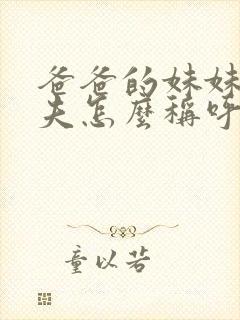 爸爸的妹妹
夫怎麼稱呼
童以若